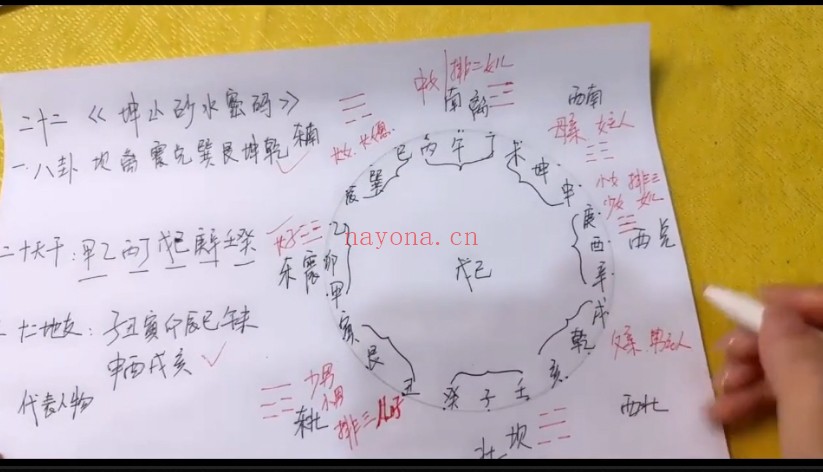 二十二《坤山砂水密码》
一.八卦 坎离震兑巽艮坤乾
二十天干：甲乙丙丁戊己庚辛壬癸
十二地支：子丑寅卯辰巳午未
申酉戌亥
代表人物
中女 排二女儿
南 离
西南
母亲 女主人
东南
长女 长媳
辰 巽 巳 丙 午 丁 未 坤 申
少女 排三
少女 女儿
庚 酉 辛
西 兑
长子
东 震
乙 卯 甲
戊己
hayona.cn
寅 艮 丑
戌 乾 亥
父亲 男主人
西北
少男
小男
排三儿子
东北
癸 子 壬
北 坎